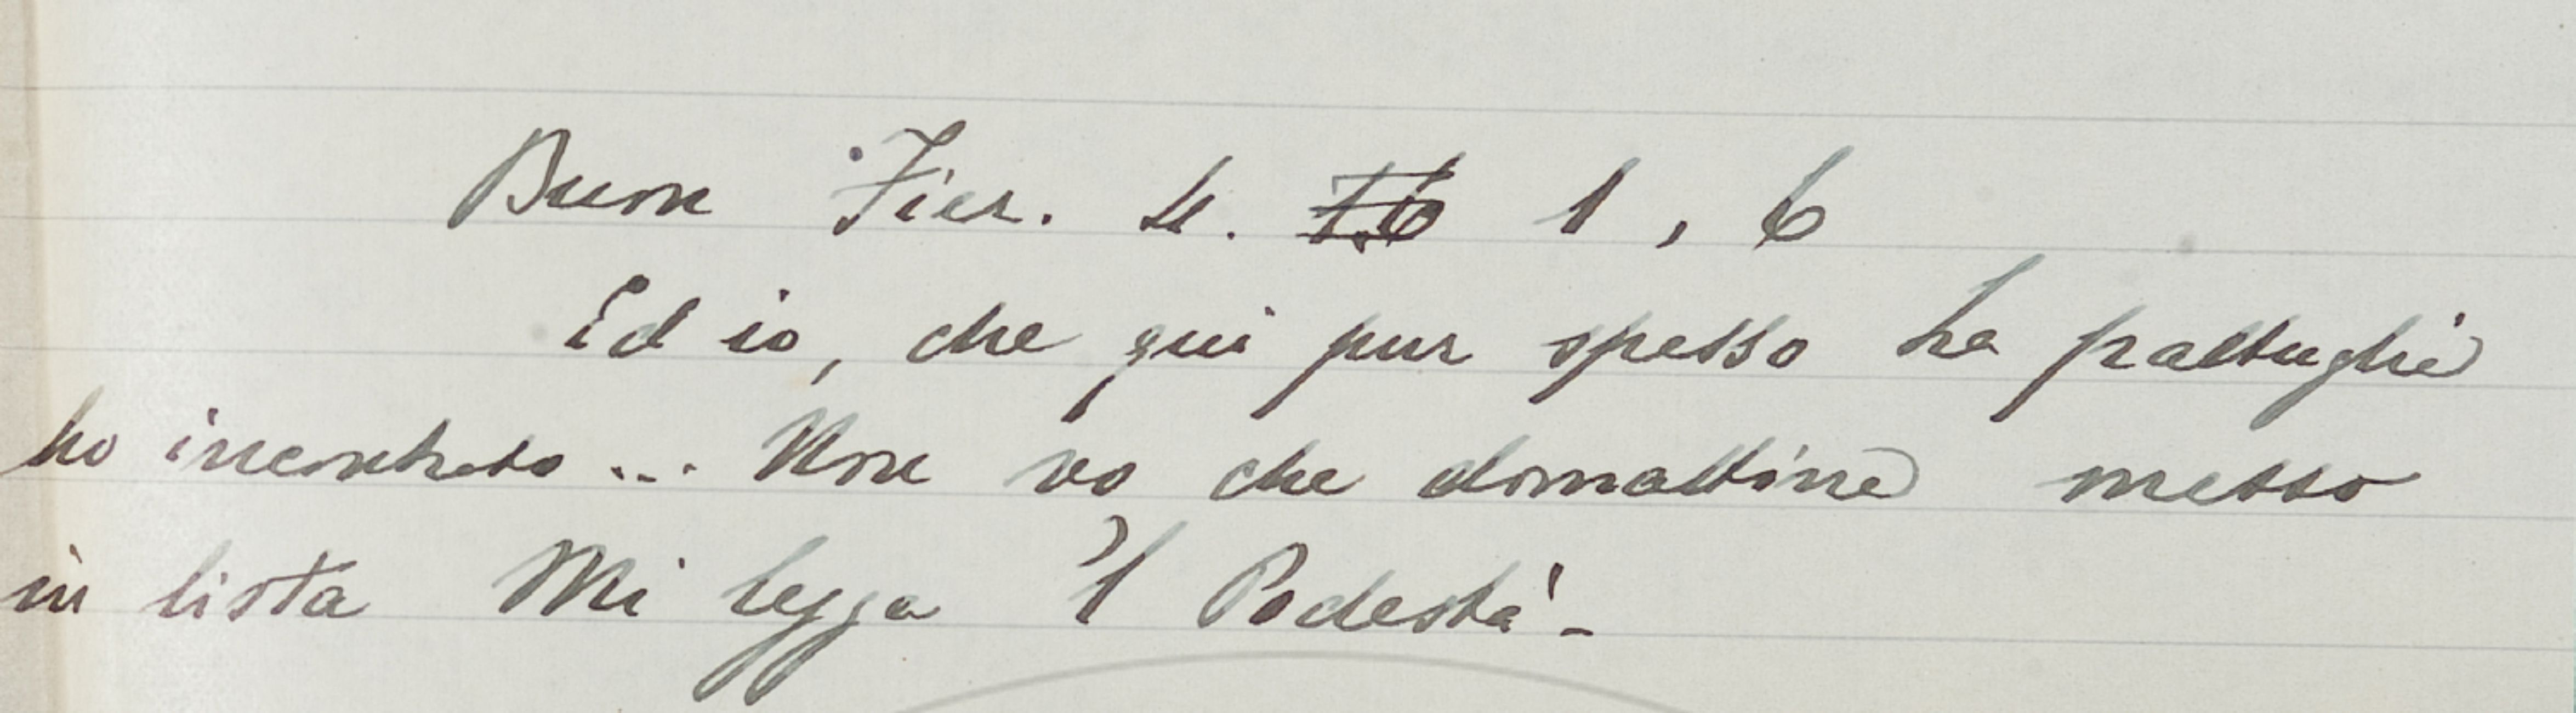 Buon Fier. 4. 1, 6
Ed io, che qui pur spesso la pattuglia
ho incontrato ... Non vo che domattina messo
in lista Mi legga 'l Podestà -